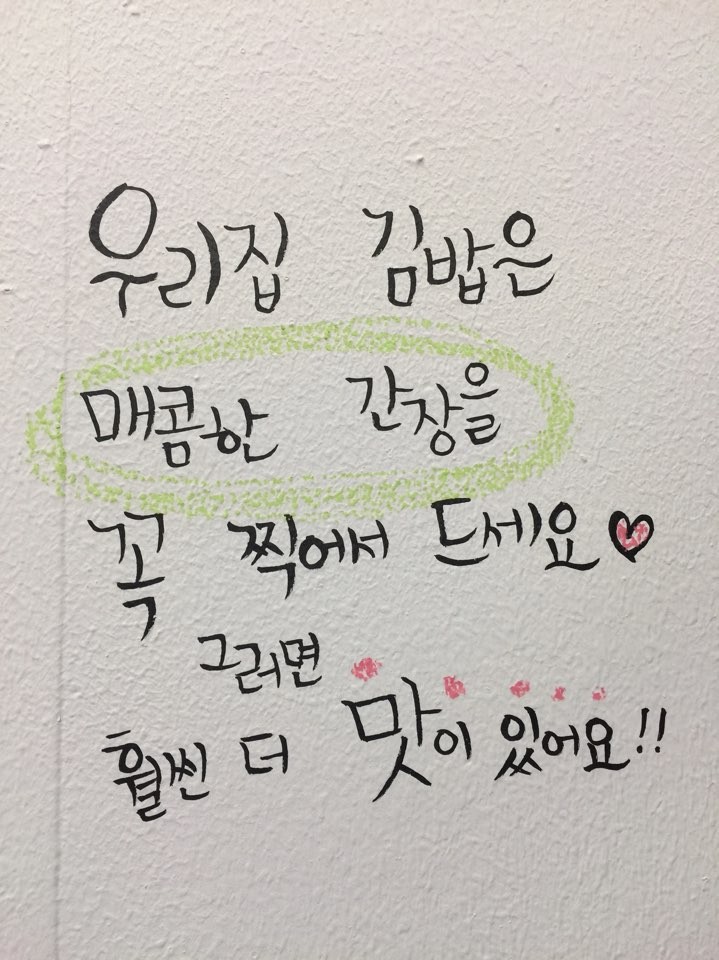 우리집 김밥은
매콤한 간장을
꼭 찍어서 드세요♥
그러면
훨씬 더 맛이 있어요!!